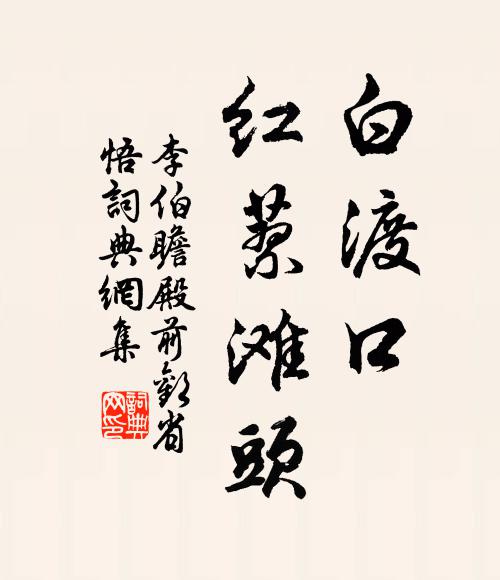 白渡口
红蓼滩頭
李伯瞻殿前歡省
悟詞典網集
詞典
网印